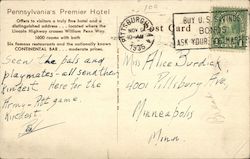 Pennsylvania's Premier Hotel
Offers to visitors a truly fine hotel and a
distinguished address . . . located where the
Lincoln Highway crosses William Penn Way.
1600 rooms with bath
Six famous restaurants and the nationally known
CONTINENTAL BAR . . . moderate prices.
Seen the pals and
playmates - all send their
kindest. Here for the
Army - Pitt game.
Kindest
PITTSBURGH
NOV
10-AM
1935
BUY U.S.
BONDS
ASK YOUR
Post Card
Miss Alice Burdick
4001 Pillsbury Ave,
Minneapolis
Minn.